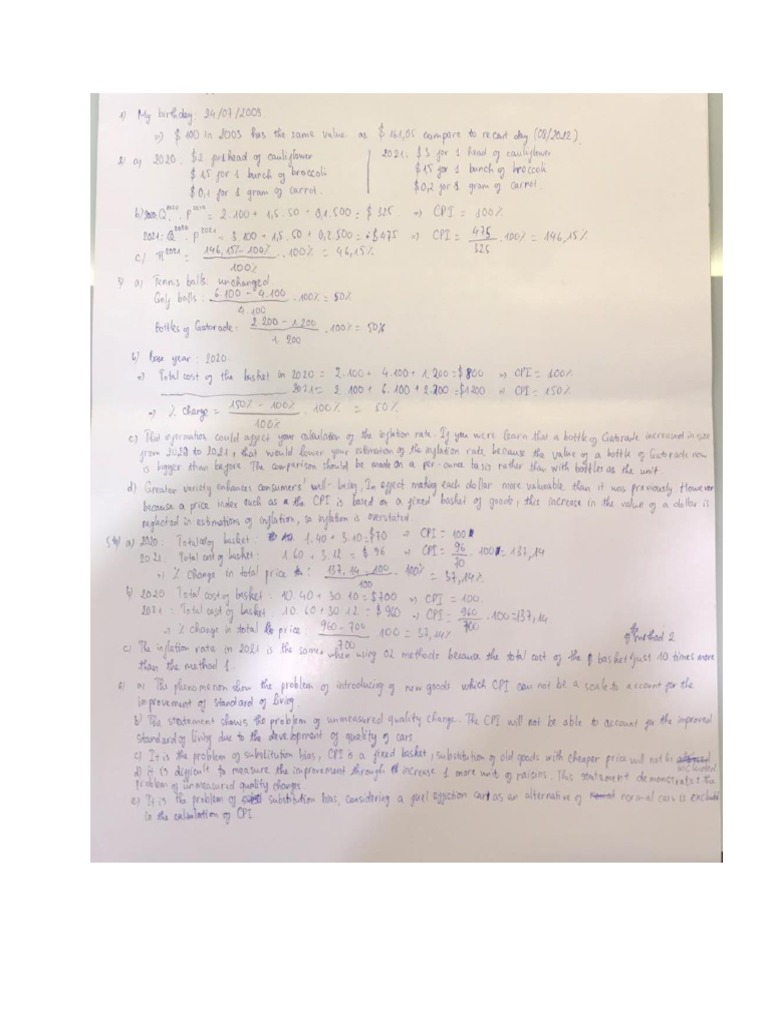 1) My birthday: 24/07/2003.
=> $100 in 2003 has the same value as $161,05 compare to recent day (08/2022).
2. a) 2020: $2 per head of cauliflower
$1,5 for 1 bunch of broccoli
$0,1 for 1 gram of carrot.
2021: $3 for 1 head of cauliflower
$1,5 for 1 bunch of broccoli
$0,2 for 1 gram of carrot.
b) 2020: Q²⁰²⁰ . P²⁰²⁰ = 2.100 + 1,5.50 + 0,1.500 = $325 => CPI = 100%
2021: Q²⁰²⁰ . P²⁰²¹ = 3.100 + 1,5.50 + 0,2.500 = $475 => CPI = 475/325 .100% = 146,15%
c/ π²⁰²¹ = (146,15% - 100%)/100% . 100% = 46,15%
a) Tennis balls: unchanged
Golf balls: (6.100 - 4.100)/4.100 .100% = 50%
Bottles of Gatorade: (2.200 - 1.200)/1.200 .100% = 50%
b) Base year: 2020
=> Total cost of the basket in 2020 = 2.100 + 4.100 + 1.200 = $800 => CPI = 100%
2021 = 2.100 + 6.100 + 2.200 = $1200 => CPI = 150%
=> % Change = (150% - 100%)/100% . 100% = 50%
c) That information could affect your calculation of the inflation rate. If you were learn that a bottle of Gatorade increased in size
from 2020 to 2021, that would lower your estimation of the inflation rate because the value of a bottle of Gatorade now
is bigger than before. The comparison should be made on a per-ounce basis rather than with bottles as the unit.
d) Greater variety enhances consumers' well-being, In effect making each dollar more valuable than it was previously However
because a price index such as the CPI is based on a fixed basket of goods, this increase in the value of a dollar is
neglected in estimations of inflation, so inflation is overstated.
a) 2020: Total cost of basket: 1.40 + 3.10 = $70 => CPI = 100
2021: Total cost of basket: 1.60 + 3.12 = $96 => CPI = 96/70 . 100 = 137,14
=> % Change in total price: (137,14 - 100)/100 . 100% = 37,14%
b) 2020: Total cost of basket: 10.40 + 30.10 = $700 => CPI = 100.
2021: Total cost of basket 10.60 + 30.12 = $960 => CPI = 960/700 .100 = 137,14
=> % change in total price: (960 - 700)/700 .100 = 37,14%
c) The inflation rate in 2021 is the same when using 02 methods because the total cost of the basket of the method 2 just 10 times more
than the method 1.
6 a. The phenomenon show the problem of introducing of new goods which CPI can not be a scale to account for the
improvement of standard of living.
b) The statement shows the problem of unmeasured quality change. The CPI will not be able to account for the improved
standard of living due to the development of quality of cars
c) It is the problem of substitution bias, CPI is a fixed basket, substitution of old goods with cheaper price will not be included.
d) It is difficult to measure the improvement through increase 1 more unit of raisins. This statement demonstrates the
problem of unmeasured quality changes
e) It is the problem of substitution bias, considering a fuel efficient cars as an alternative of normal cars is excluded
in the calculation of CPI